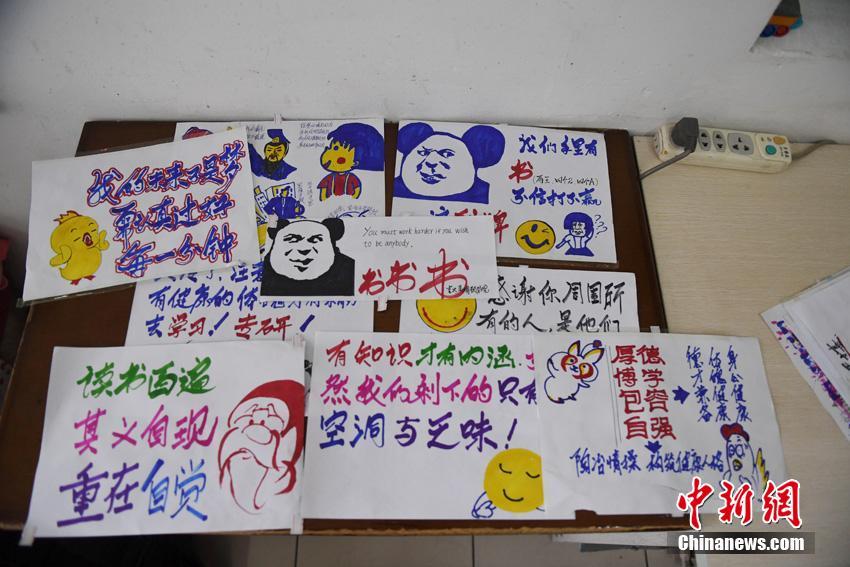 我的未来不是梦
认真过好
每一分钟
我们手里有
书
不信打不赢
You must work harder if you wish
to be anybody.
书书书
有健康的体
去学习！专研！
感谢你周围所
有的人，是他们
读书百遍
其义自现
重在自觉
有知识才有内涵
然我的剩下的只有
空洞与乏味！
厚德
博学
包容
自强
德体身
才魄心
兼健健
备康康
陶冶情操 构筑健康人格
中新网
Chinanews.com